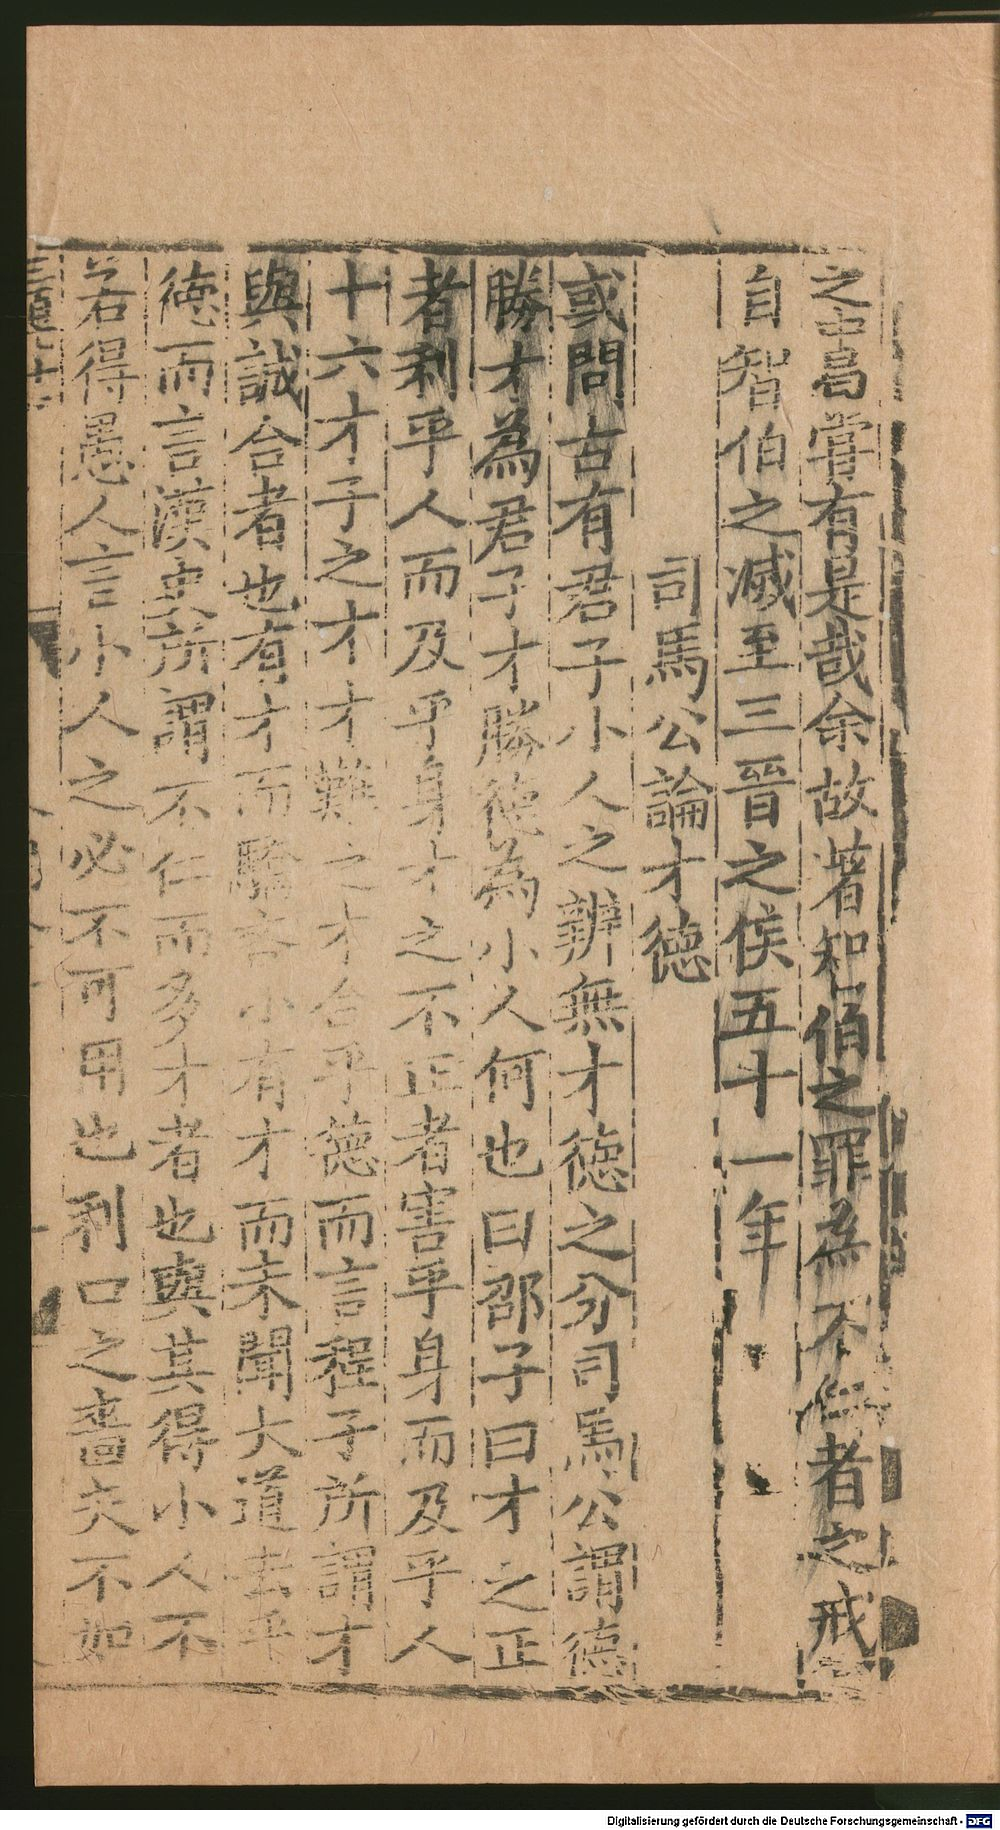 之中曷嘗有是哉余故著知伯之罪為不仁者之戒
自智伯之滅至三晉之侯五十一年
司馬公論才德
或問古有君子小人之辨無才德之分司馬公謂德
勝才為君子才勝德為小人何也曰邵子曰才之正
者利乎人而及乎身才之不正者害乎身而及乎人
十六才子之才才難之才合乎德而言程子所謂才
與誠合者也有才而驕吝小有才而未聞大道去乎
德而言漢史所謂不仁而多才者也與其得小人不
若得愚人言小人之必不可用也利口之嗇夫不如
Digitalisierung gefördert durch die Deutsche Forschungsgemeinschaft - DFG